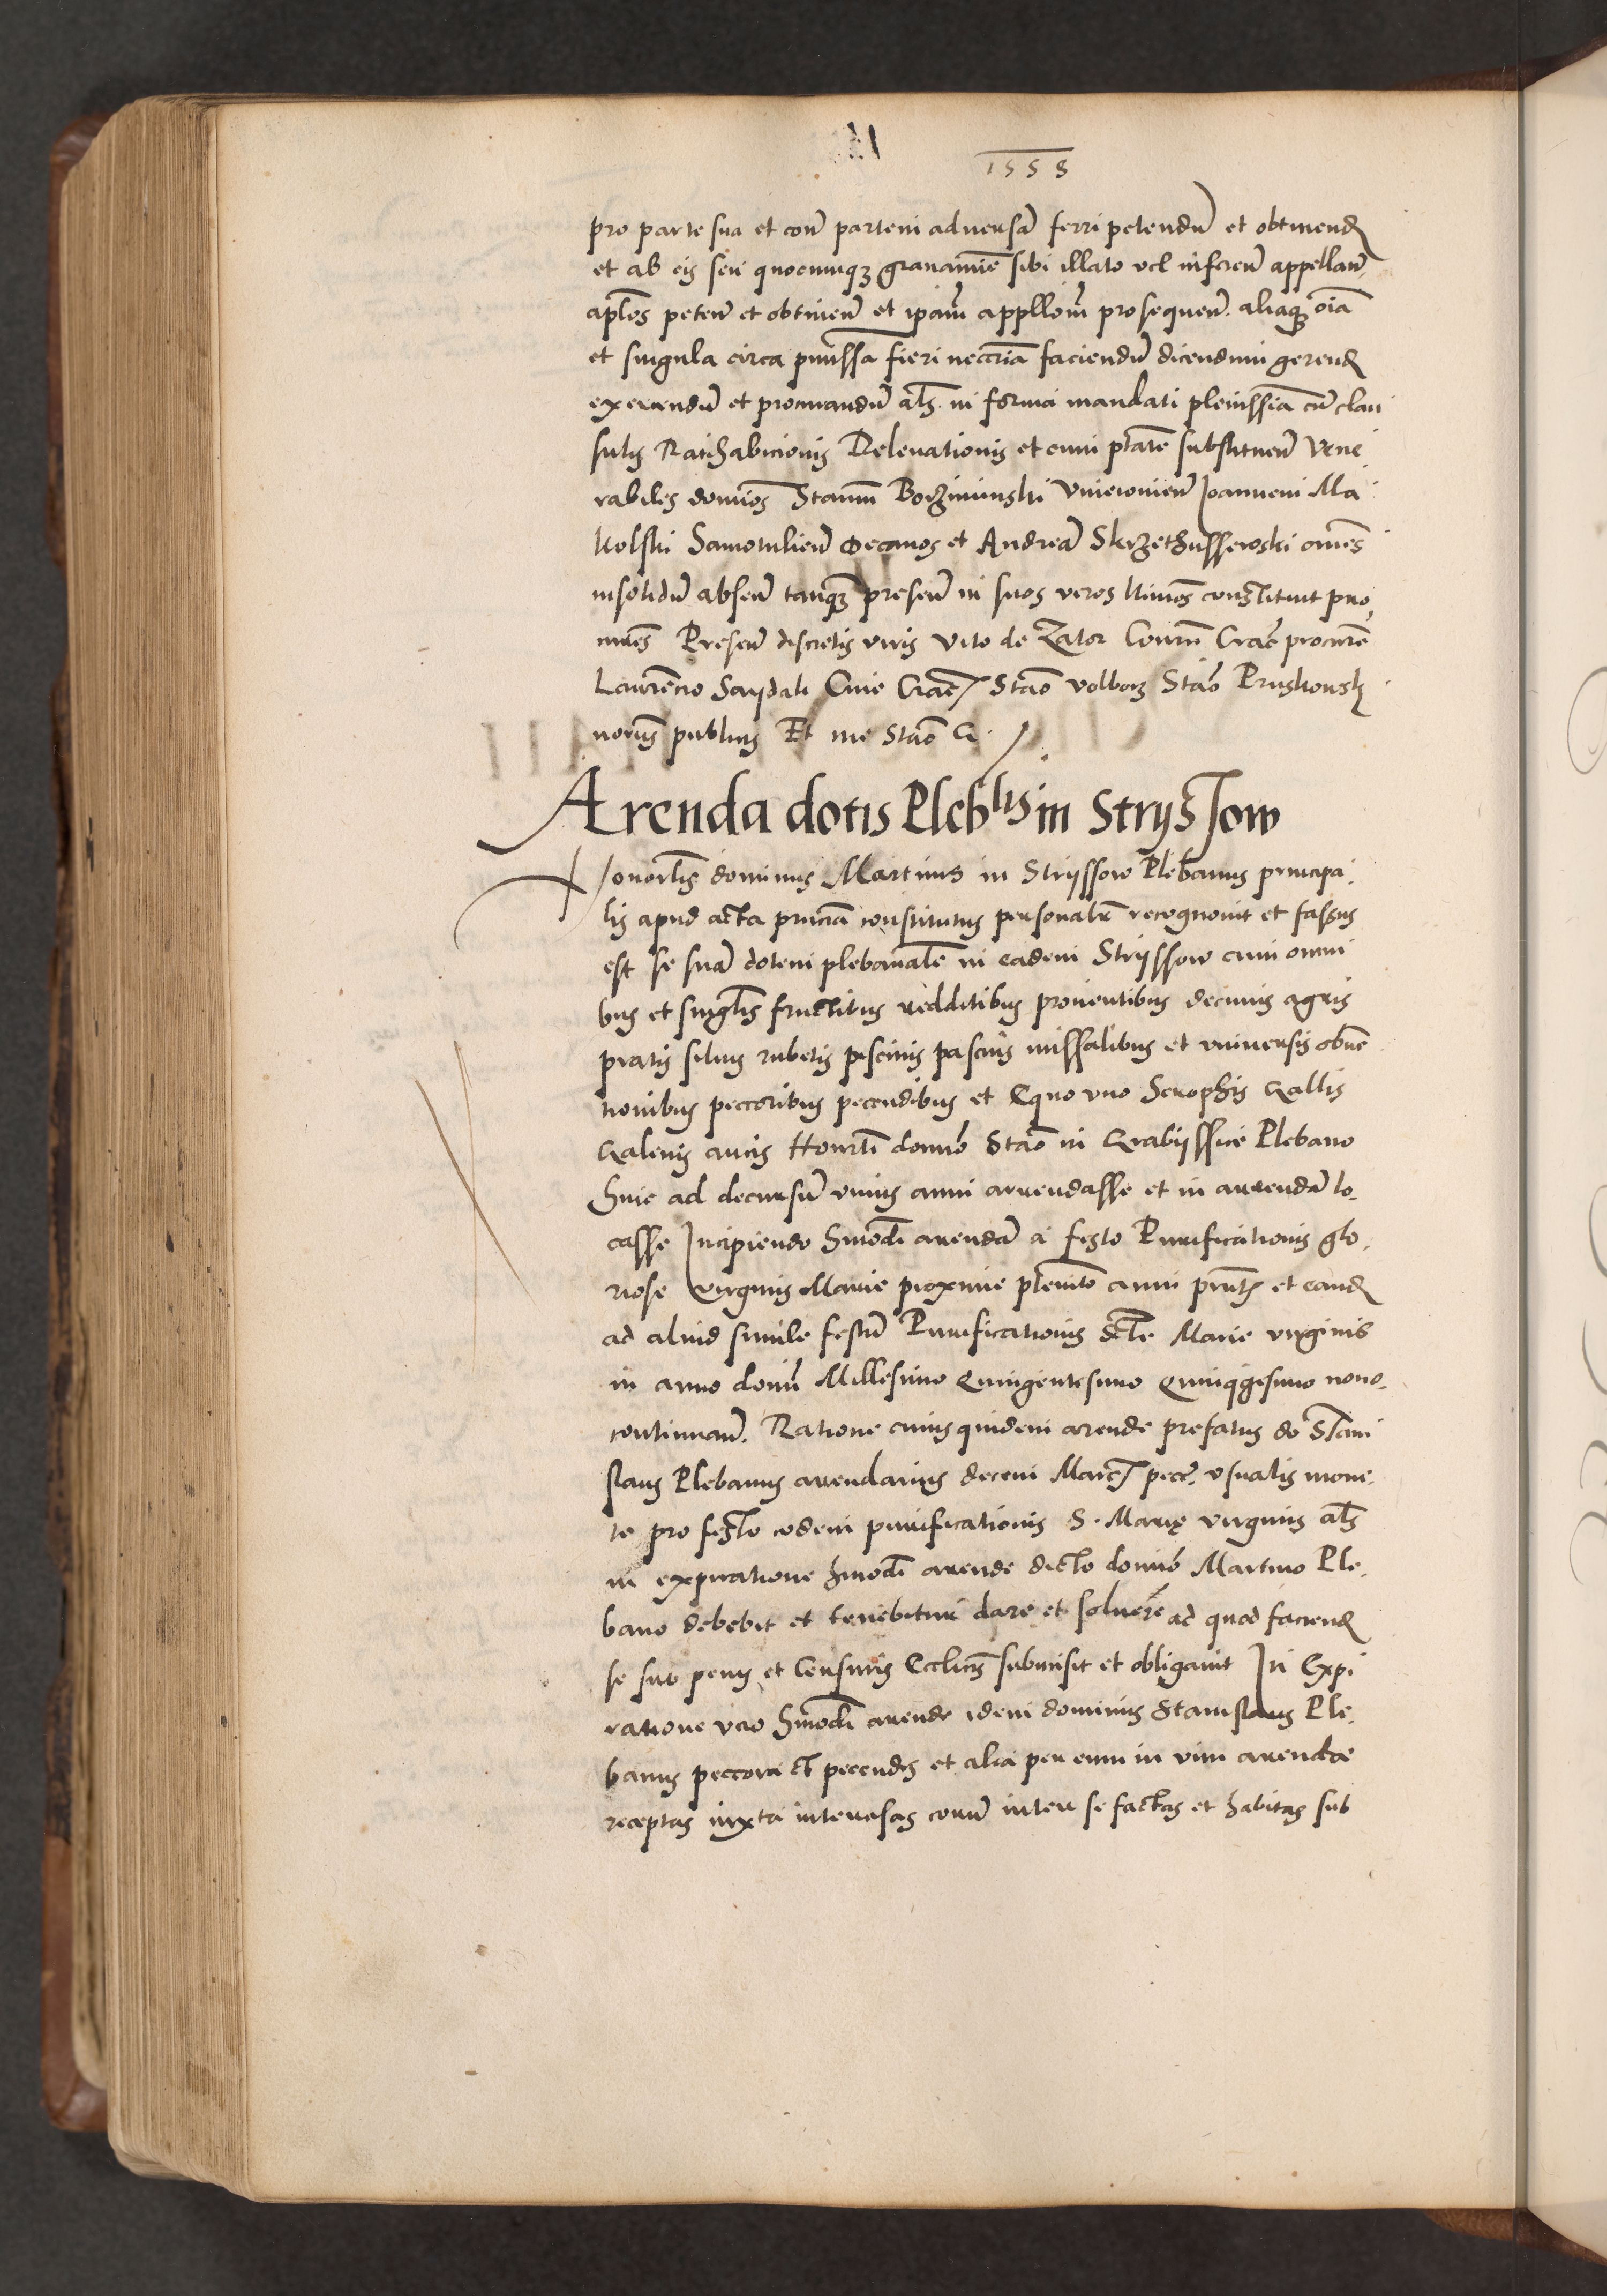 1558
pro parte sua et con̄ partem aduersā ferri petendū et obtinend
et ab eis seu quocumqȝ grauamīe sibi illato vel inferen̄ appellan̄
apl̄os peten̄ et obtinen̄ et ip̄am appll̄om̄ prosequen̄ aliaqȝ oīa
et singula circa p̄missa fieri neccr̄ia faciendū dicendum gerend
exercendū et procurandū al̄s in forma mandati plenissīa cū clau
sulis Ratihabicionis Releuationis et cum p̄tāte substituen̄ Vene
rabiles domīos Stanm̄ Borzimīnski Vnieiouien̄ Joannem Ma
kolski Samotulien̄ Decanos et Andreā Skrzethussewski om̄es
insolidū absen̄ tanqȝ presen̄ in suos veros l̄timos constituit pro
cur̄es Presen̄ discretis viris Vito de Zator Court̄ Crac̄ procur̄e
Laurēcio Saydak Ciue Crac̄ Stāo Volborz Stāo Pruskowsk
notr̄is publicis Et me Stāo G
Arenda dotis Pleb̄lis in Stryssow
Honorl̄is dominus Martinus in Stryssow Plebanus principa
lis apud acta prn̄cia constitutus personal̄r recognouit et fassus
est se suā dotem plebanal̄e in eadem Stryssow cum omni
bus et singl̄is fructibus redditibus prouentibus decimis agris
pratis siluis rubetis piscinis pascuis missalibus et vniuersis obuē
tionibus peccoribus pecudibus et Equo vno Scrophis Gallis
Galenis aucis Honorl̄i domīo Stāo in Grabyssice Plebano
huic ad decursū vnius anni arrendasse et in arrendā lo
casse Incipiendo hmōdi arendā a festo Purificationis glo
riose virginis Marie proxime p̄terito anni prn̄tis et eand
ad aliud simile festū Purificationis dctē Marie virginis
in anno domī Millesimo Quingentesimo Quinqgesimo nono
continuan̄. Ratione cuius quidem arende prefatus do Stani
slaus Plebanus arrendarius decem Marc̄ pecc̄ vsualis mone
te pro festo eodem purificationis S. Marię virginis al̄s
in expiratione hmōdi arende dicto domīo Martino Ple
bano debebit et tenebitur dare et soluere ad quod faciend
se sub penis et Censuris Eccl̄icis submisit et obligauit In Expi
ratione v̄o hmōdi arende idem dominus Stanislaus Ple
banus peccora et pecudes et alia per eum in vim arendae
receptas iuxta intercisas eorum inter se factas et habitas sub